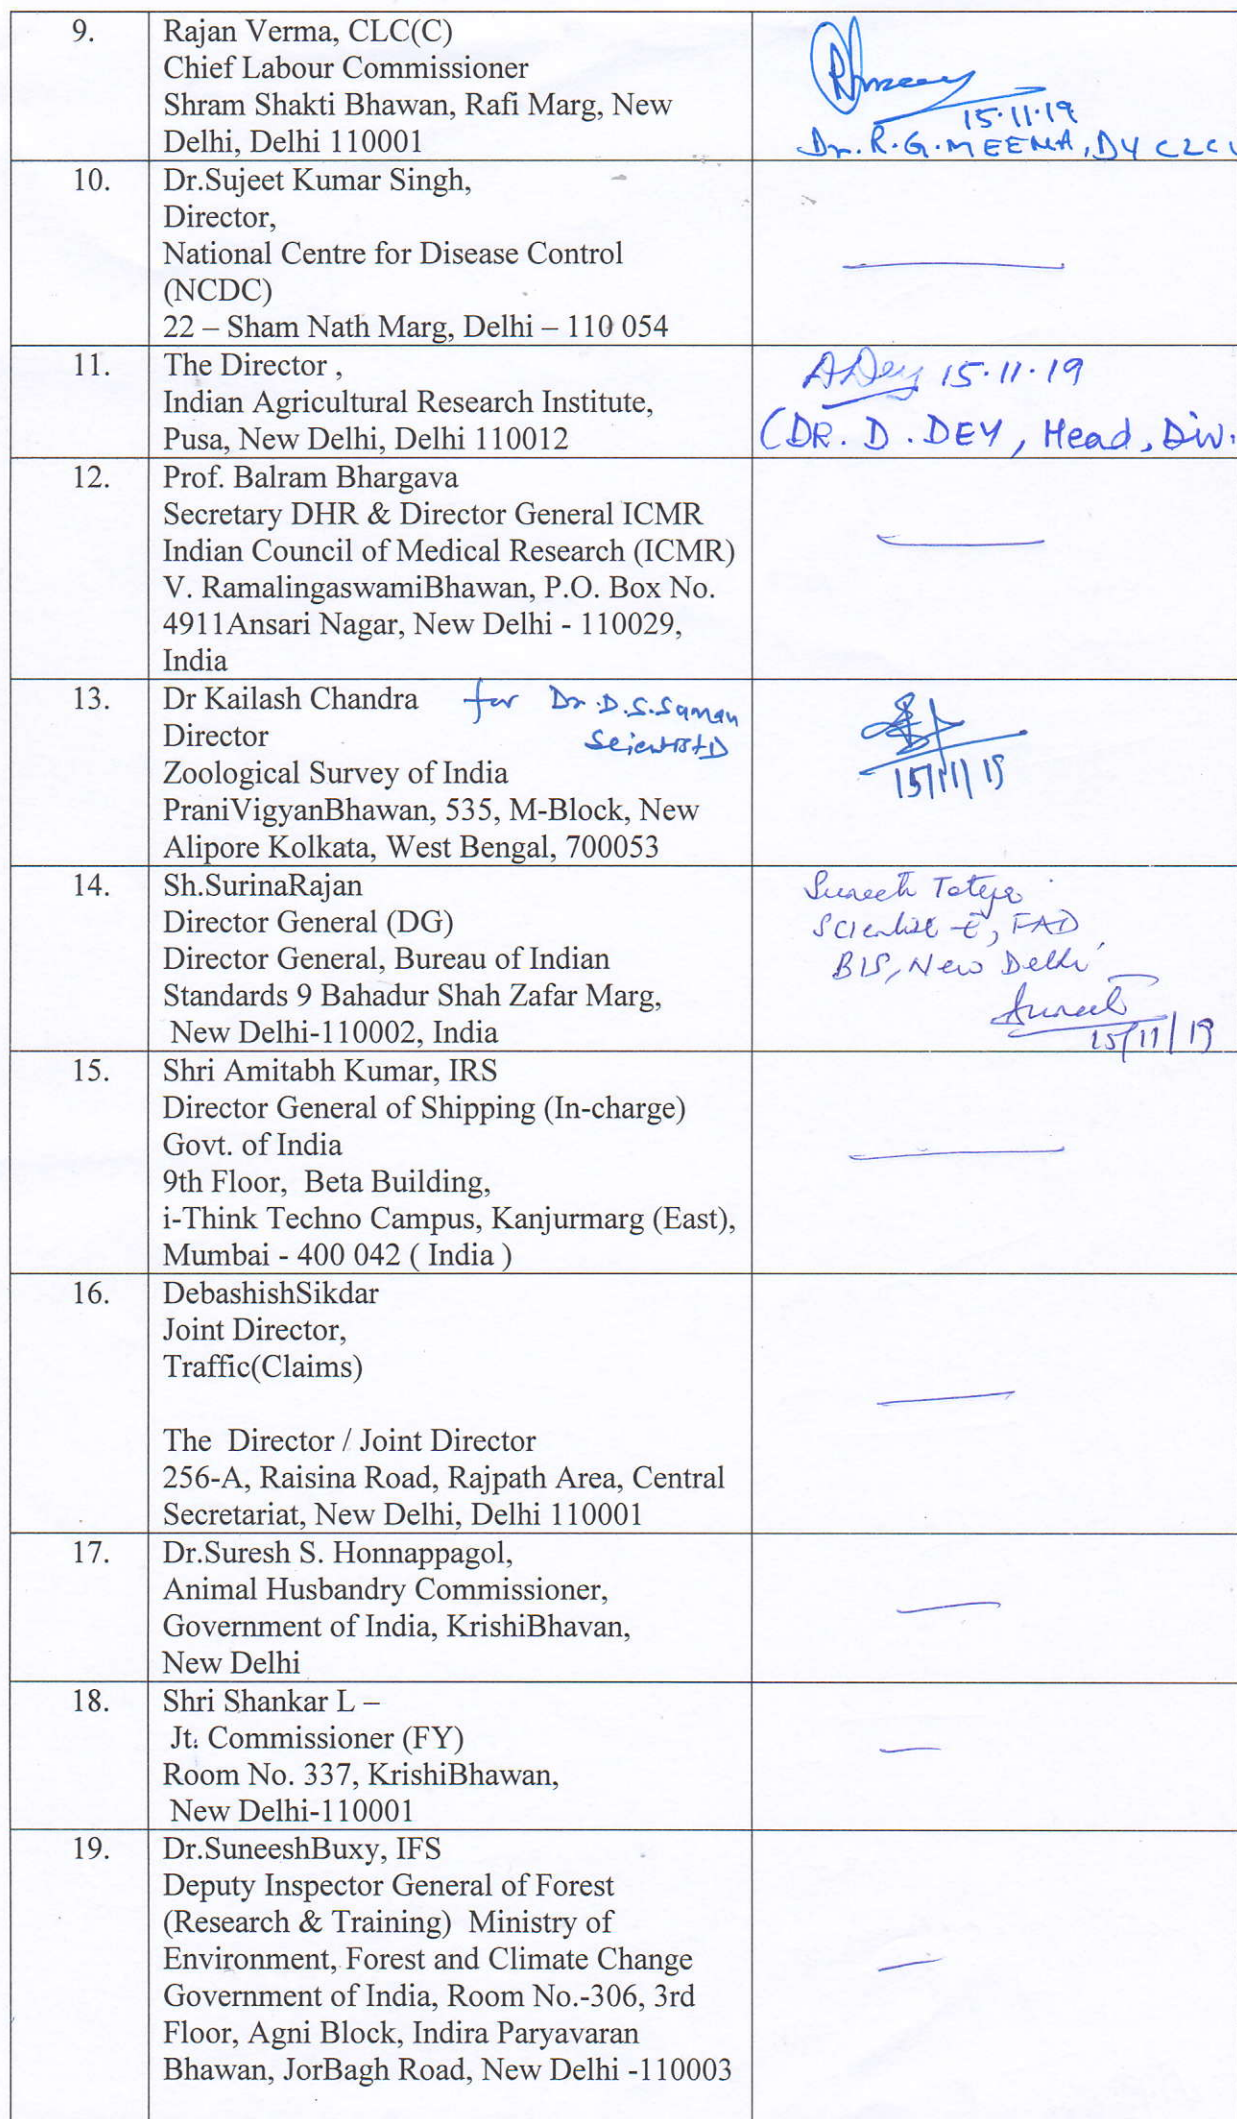 9.
Rajan Verma, CLC(C)
Chief Labour Commissioner
Shram Shakti Bhawan, Rafi Marg, New
Delhi, Delhi 110001
15.11.19
Dr. R.G.MEENA, DY CLC
10.
Dr.Sujeet Kumar Singh,
Director,
National Centre for Disease Control
(NCDC)
22 – Sham Nath Marg, Delhi – 110 054
11.
The Director ,
Indian Agricultural Research Institute,
Pusa, New Delhi, Delhi 110012
ADey 15.11.19
(DR. D. DEY, Head, Div.
12.
Prof. Balram Bhargava
Secretary DHR & Director General ICMR
Indian Council of Medical Research (ICMR)
V. RamalingaswamiBhawan, P.O. Box No.
4911Ansari Nagar, New Delhi - 110029,
India
13.
Dr Kailash Chandra for Dr. D.S.Suman
Director Scientist D
Zoological Survey of India
PraniVigyanBhawan, 535, M-Block, New
Alipore Kolkata, West Bengal, 700053
15/11/19
14.
Sh.SurinaRajan
Director General (DG)
Director General, Bureau of Indian
Standards 9 Bahadur Shah Zafar Marg,
New Delhi-110002, India
Suneeti Toteja
Scientist-E, FAD
BIS, New Delhi
Suneeti
15/11/19
15.
Shri Amitabh Kumar, IRS
Director General of Shipping (In-charge)
Govt. of India
9th Floor, Beta Building,
i-Think Techno Campus, Kanjurmarg (East),
Mumbai - 400 042 ( India )
16.
DebashishSikdar
Joint Director,
Traffic(Claims)
The Director / Joint Director
256-A, Raisina Road, Rajpath Area, Central
Secretariat, New Delhi, Delhi 110001
17.
Dr.Suresh S. Honnappagol,
Animal Husbandry Commissioner,
Government of India, KrishiBhavan,
New Delhi
18.
Shri Shankar L –
Jt. Commissioner (FY)
Room No. 337, KrishiBhawan,
New Delhi-110001
19.
Dr.SuneeshBuxy, IFS
Deputy Inspector General of Forest
(Research & Training) Ministry of
Environment, Forest and Climate Change
Government of India, Room No.-306, 3rd
Floor, Agni Block, Indira Paryavaran
Bhawan, JorBagh Road, New Delhi -110003